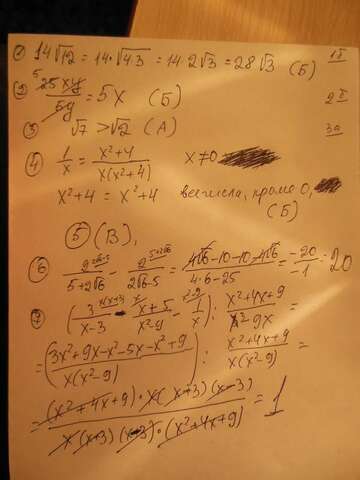 ① 14√12 = 14·√4·3 = 14 2√3 = 28√3 (Б) 1Б
② 25xy/5y = 5x (Б) 2Б
③ √7 > √2 (А) 3а
④ 1/x = x²+4/x(x²+4) x≠0
x²+4 = x²+4 все числа, кроме 0,
(Б)
⑤ (В),
⑥ 2^(2√6-5)/5+2√6 - 2^(5+2√6)/2√6-5 = 4√6-10-10-4√6/4·6-25 = -20/-1 = 20
⑦ (3^(x(x+3))/x-3 - x+5^(x)/x²-9 - 1^(x²-9)/x) : x²+4x+9/x³-9x =
= (3x²+9x-x²-5x-x²+9/x(x²-9)) : x²+4x+9/x(x²-9) =
= (x²+4x+9)·x(x+3)(x-3)/x(x+3)(x-3)·(x²+4x+9) = 1